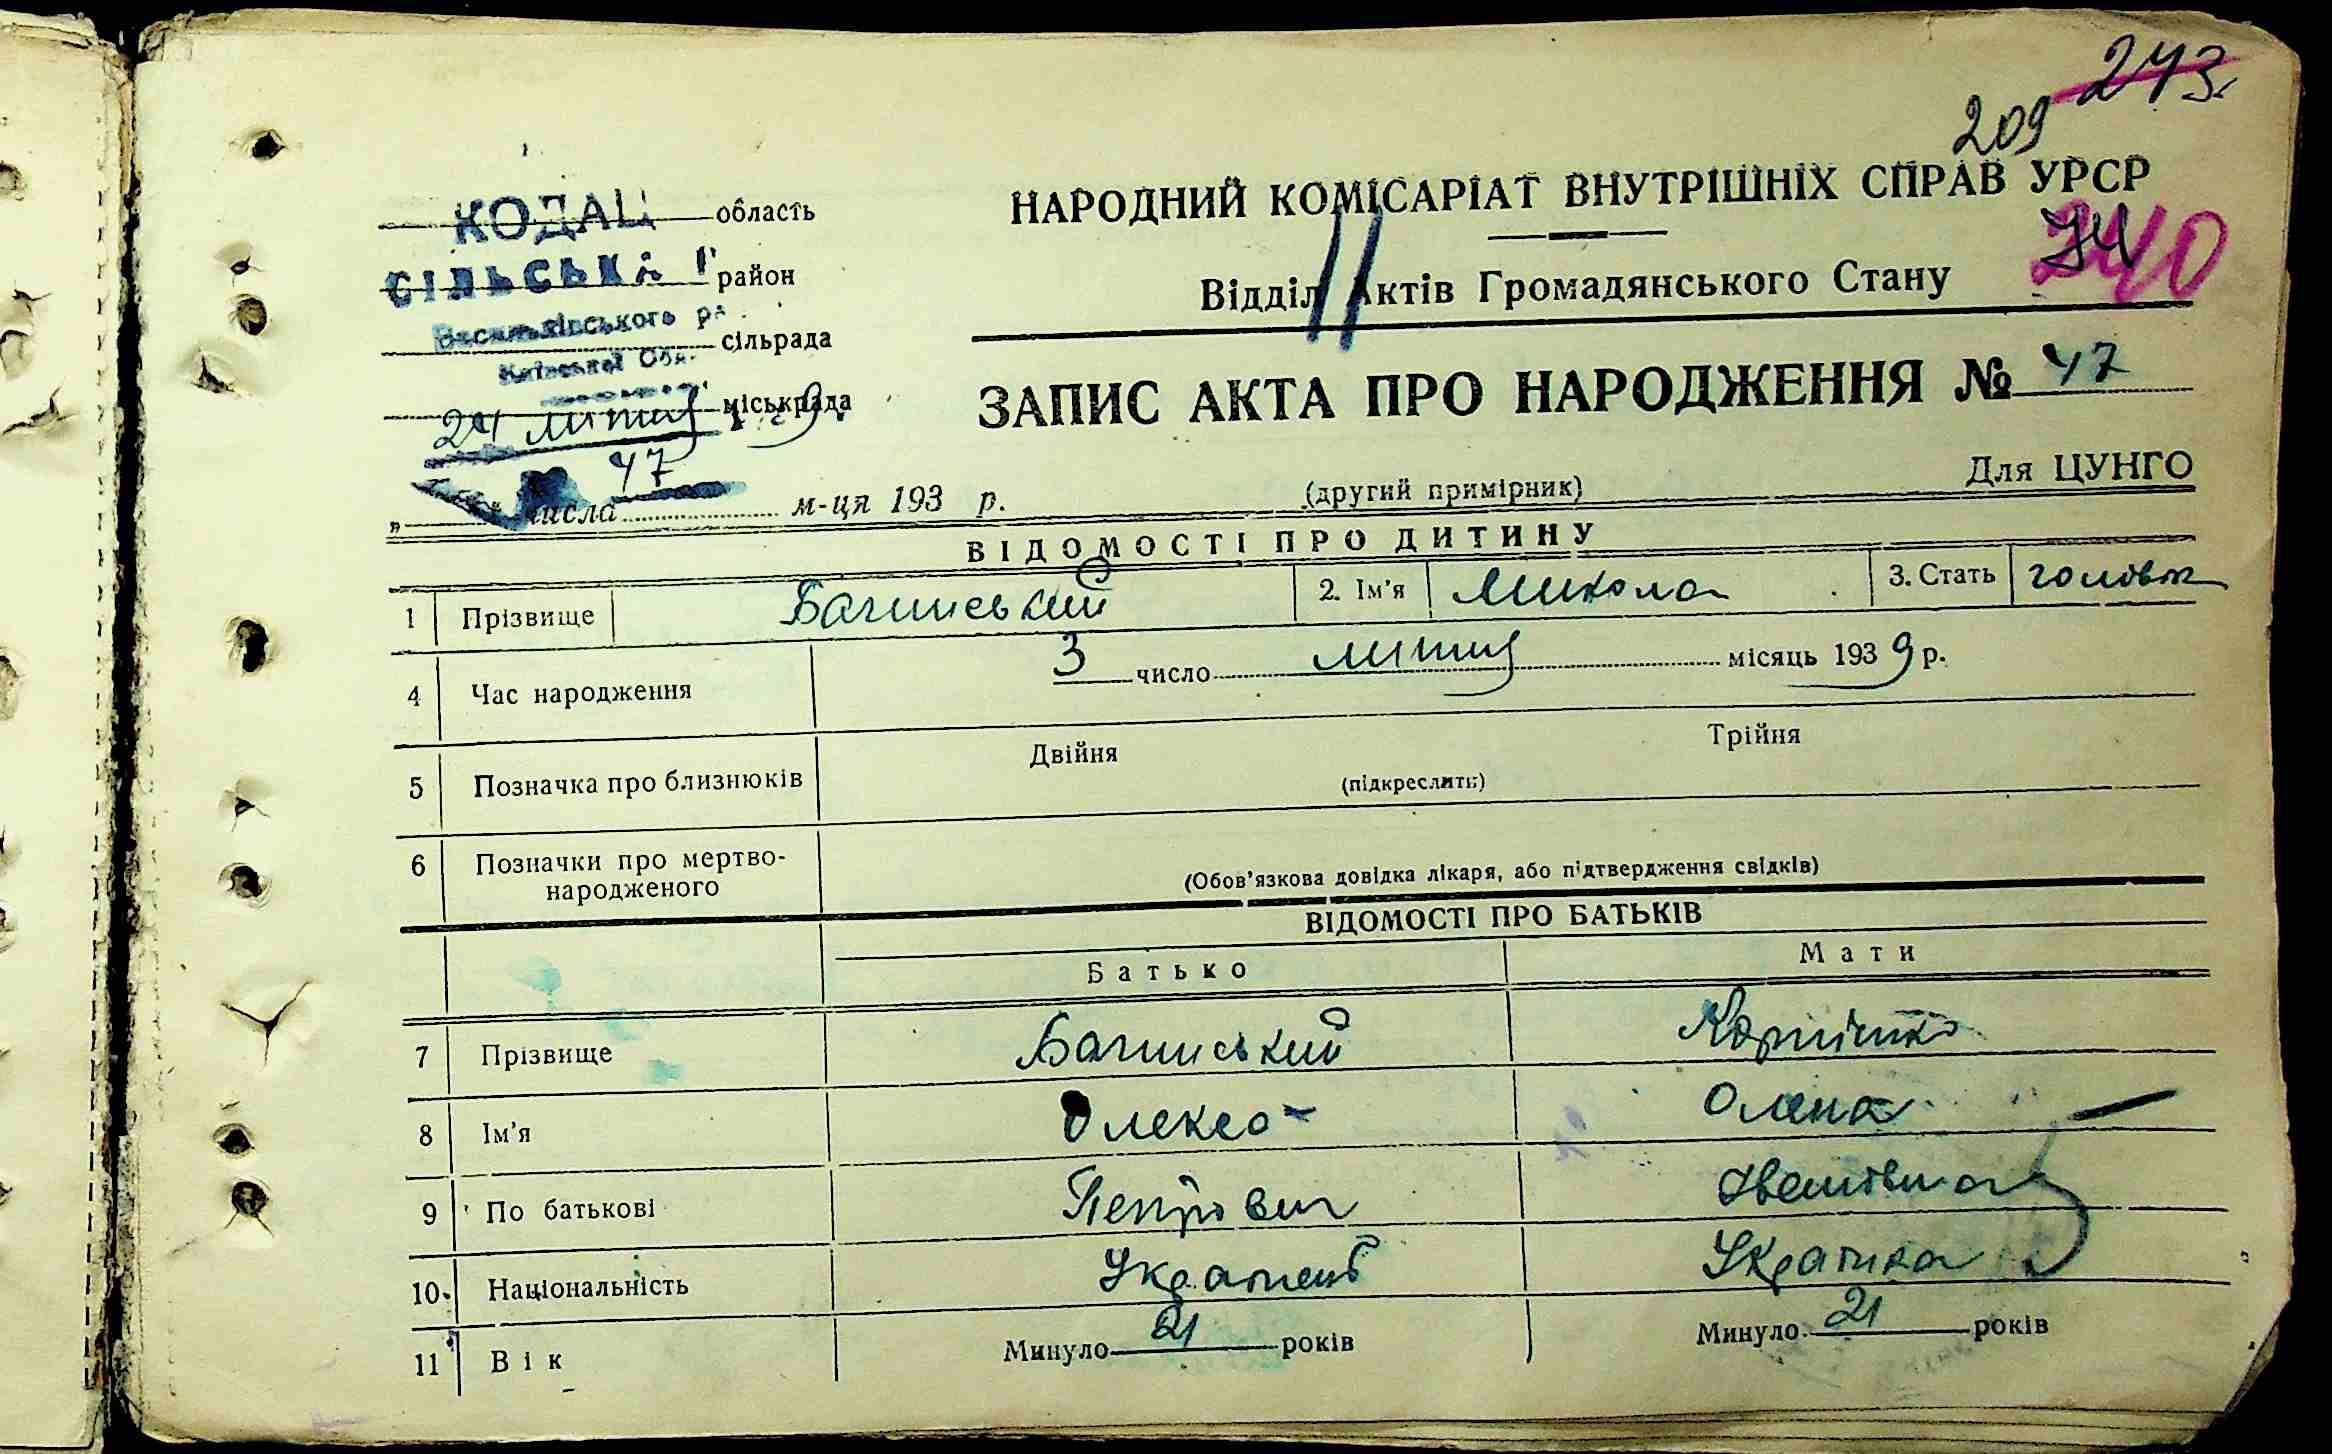 243.
209
НАРОДНИЙ КОМІСАРІАТ ВНУТРІШНІХ СПРАВ УРСР
74
240
КОДАЦ область
СІЛЬСЬКА район
Васильківського сільрада
Київської Обл. міськрада
24 лютий
47
" числа м-ця 193 р.
Відділ Актів Громадянського Стану
ЗАПИС АКТА ПРО НАРОДЖЕННЯ № 47
(другий примірник)
Для ЦУНГО
ВІДОМОСТІ ПРО ДИТИНУ
1 Прізвище Багинський 2. Ім'я Микола 3. Стать
4 Час народження 3 число лютий місяць 1939 р.
5 Позначка про близнюків Двійня Трійня
(підкреслить)
6 Позначки про мертво-
народженого (Обов'язкова довідка лікаря, або підтвердження свідків)
ВІДОМОСТІ ПРО БАТЬКІВ
Батько Мати
7 Прізвище Багинський
8 Ім'я Олекса Олена
9 По батькові Петрович Іванівна
10 Національність Українець Українка
11 Вік Минуло 21 років Минуло 21 років